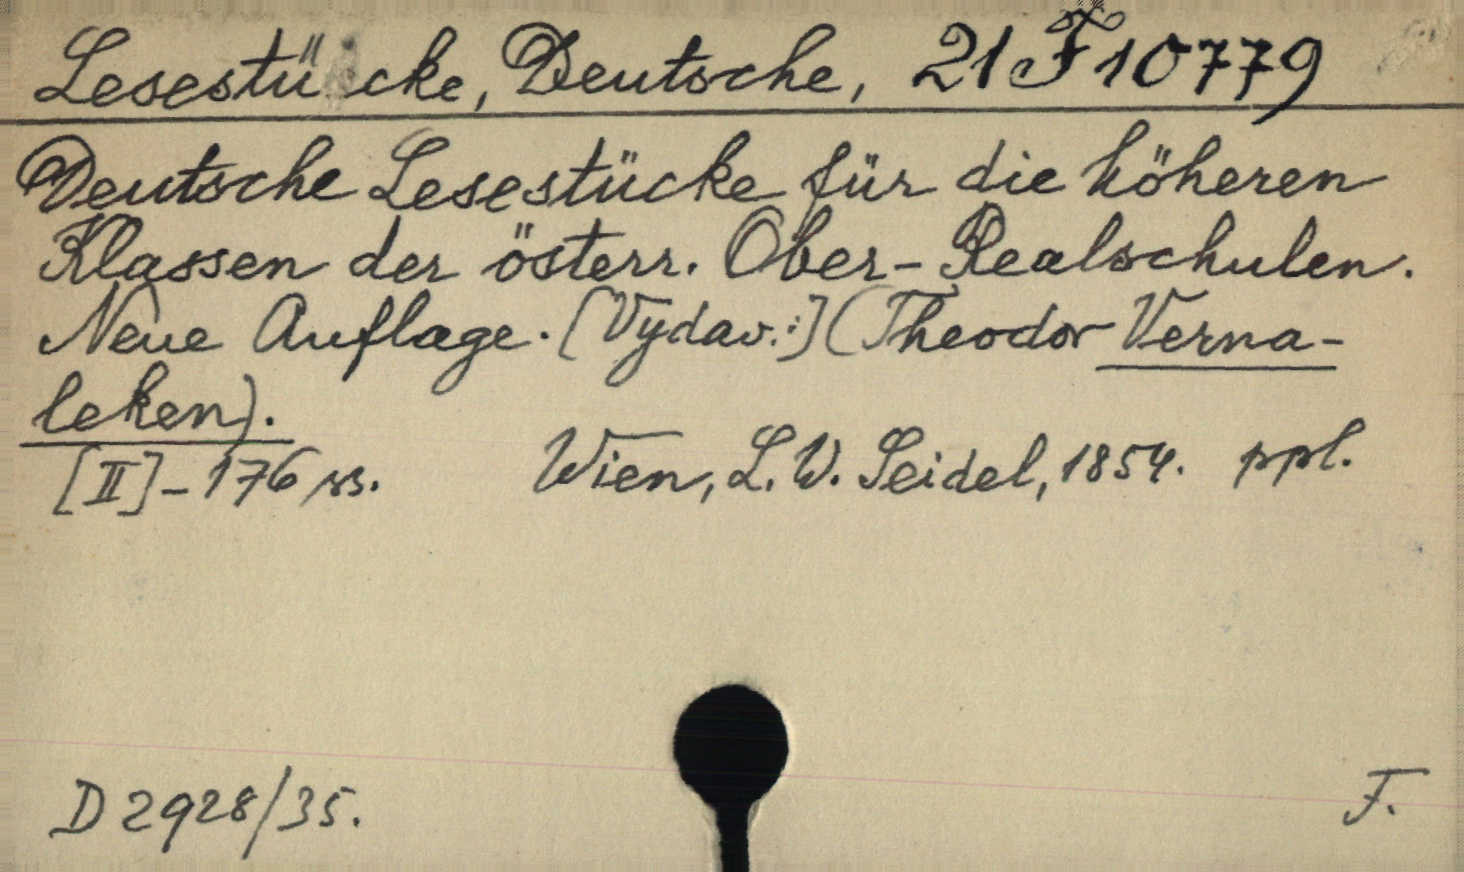 Lesestücke, Deutsche, 21 F 10779
Deutsche Lesestücke für die höheren
Klassen der österr. Ober-Realschulen.
Neue Auflage. [Vydav.:] (Theodor Verna-
leken).
[II] - 176 ss. Wien, L. W. Seidel, 1854. ppl.
D 2928/35. F.